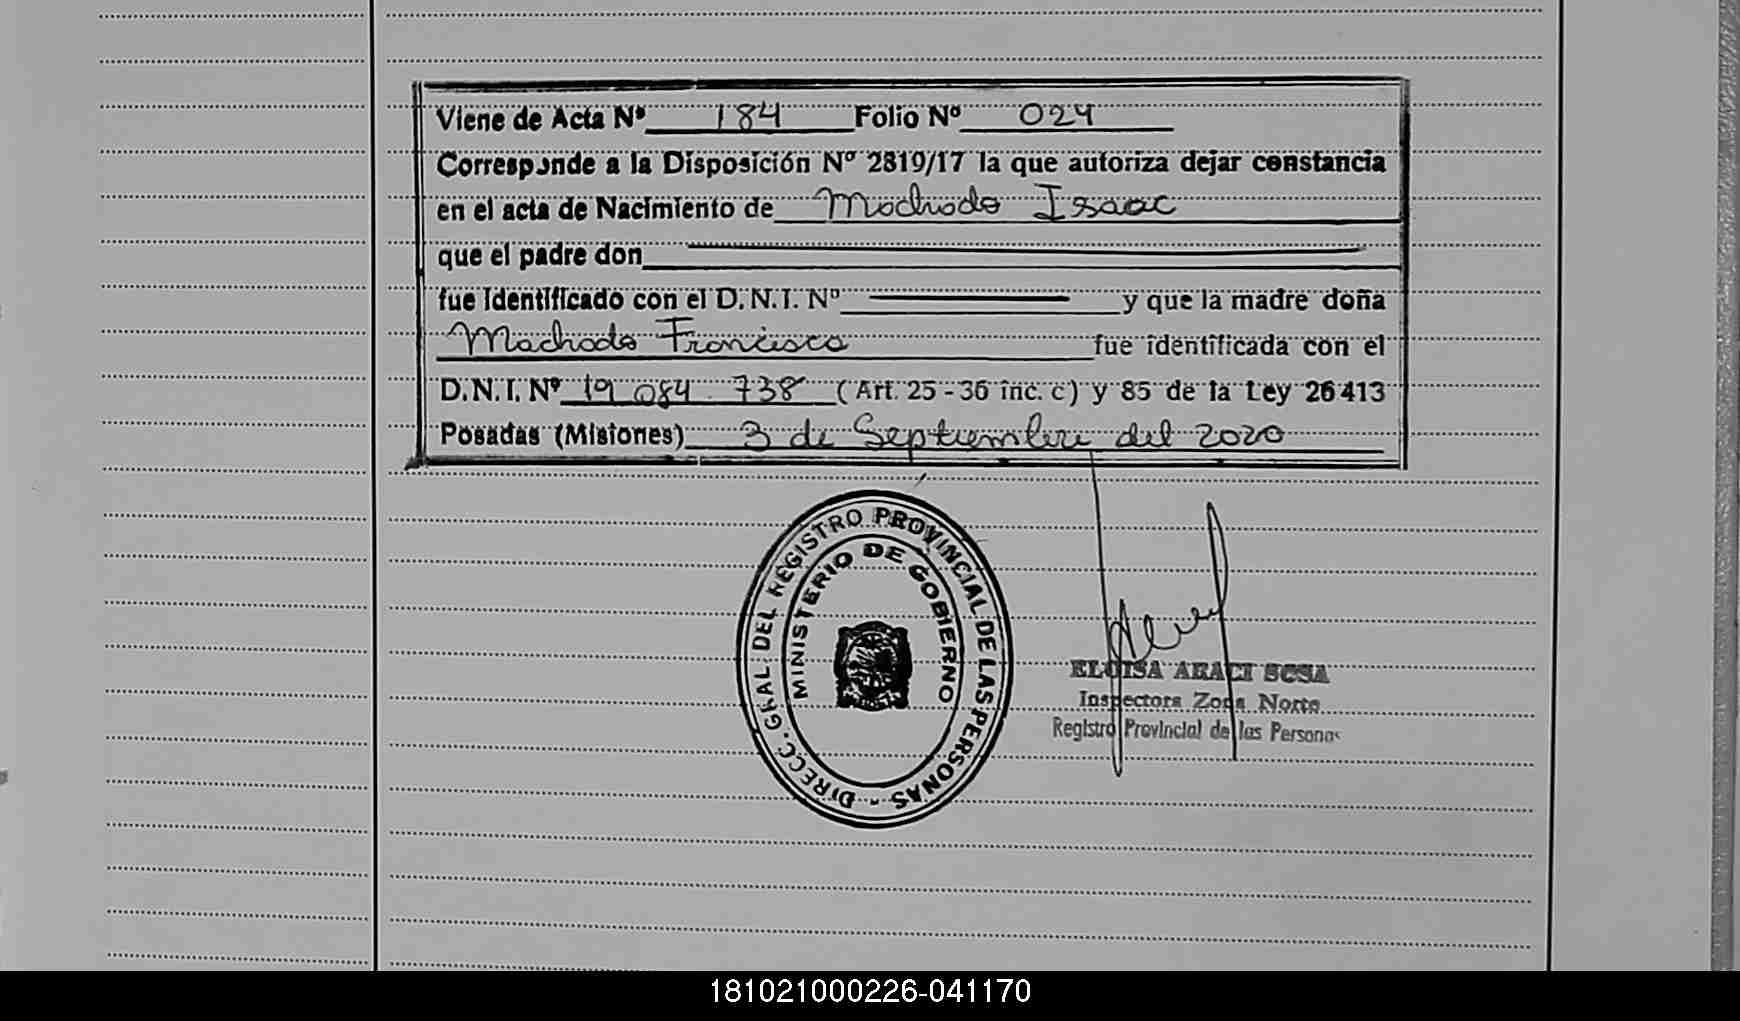 Viene de Acta Nº 184 Folio Nº 024
Corresponde a la Disposición Nº 2819/17 la que autoriza dejar constancia
en el acta de Nacimiento de Machado Isaac
que el padre don
fue identificado con el D.N.I. Nº y que la madre doña
Machado Francisca fue identificada con el
D.N.I. Nº 19 084 738 (Art. 25 - 36 inc. c) y 85 de la Ley 26413
Posadas (Misiones) 3 de Septiembre del 2020
DIRECC. GRAL DEL REGISTRO PROVINCIAL DE LAS PERSONAS -
MINISTERIO DE GOBIERNO
ELOISA ARACI SOSA
Inspectora Zona Norte
Registro Provincial de las Personas
181021000226-041170